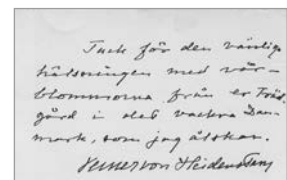 Tack för den vänliga
hälsningen med vår-
blommorna från er Träd-
gård i det vackra Dan-
mark, som jag älskar.
Verner von Heidenstam